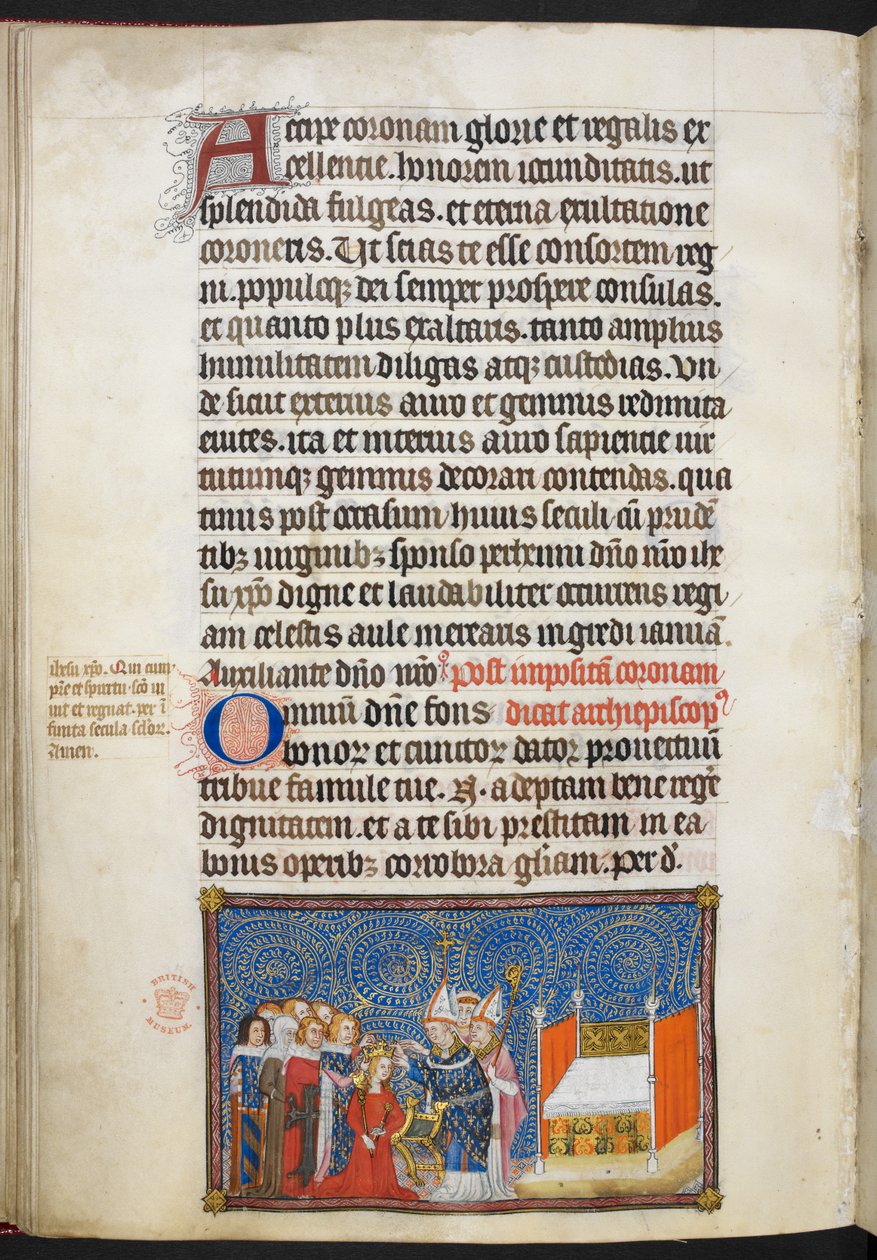 Accipe coronam glorie et regalis ex
cellentie. honorem iocunditatis. ut
splendida fulgeas. et eterna exultatione
coroneris. Ut scias te esse consortem reg
ni. populoqꝫ dei semper prospere consulas.
et quanto plus exaltaris. tanto amplius
humilitatem diligas atqꝫ custodias. Vn
de sicut exterius auro et gemmis redimita
enites. ita et interius auro sapientie uir
tutumqꝫ gemmis decorari contendas. qua
tinus post occasum huius seculi. cū prudē
tibꝫ uirginibꝫ sponso perhenni dño nr̃o ihe
su xp̃o digne et laudabiliter occurrens regi
am celestis aule merearis ingredi ianuā.
Auxiliante dño nr̃o post impositā coronam
ihesu xp̃o. Qui cum
pr̃e et spiritu sc̃o ui
uit et regnat. per ī
finita secula scl̃oꝝ.
Amen.
Omniū dñe fons dicat archiepiscopꝰ
bonoꝝ et cunctoꝝ datoꝝ prouectuū
tribue famule tue. N. adeptam bene reg̃e
dignitatem. et a te sibi prestitam in ea
bonis operibꝫ corrobora gl̃iam. Per d̃.
BRITISH MUSEUM